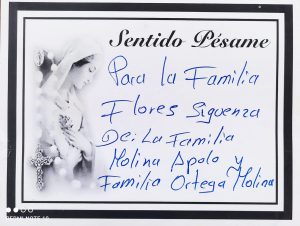 Sentido Pésame
Para la Familia
Flores Siguenza
De: La Familia
Molina Apolo y
Familia Ortega Molina